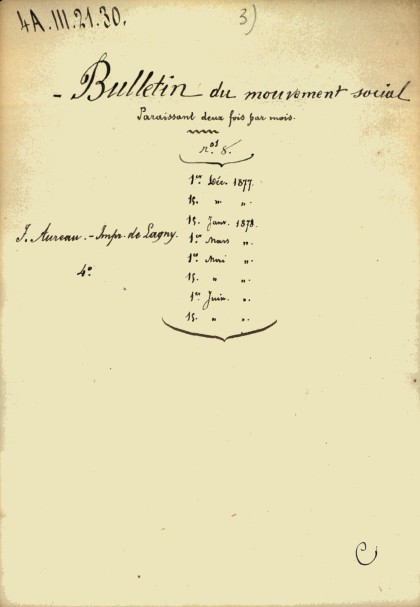 4A.III.21.30.
3)
- Bulletin du mouvement social
Paraissant deux fois par mois.
nos 8.
1er Déc. 1877.
15. " "
15. Janv. 1878.
J. Aureau. - Impr. de Lagny.
1er Mars "
4o
1er Mai "
15. " "
1er Juin. "
15. " "
C